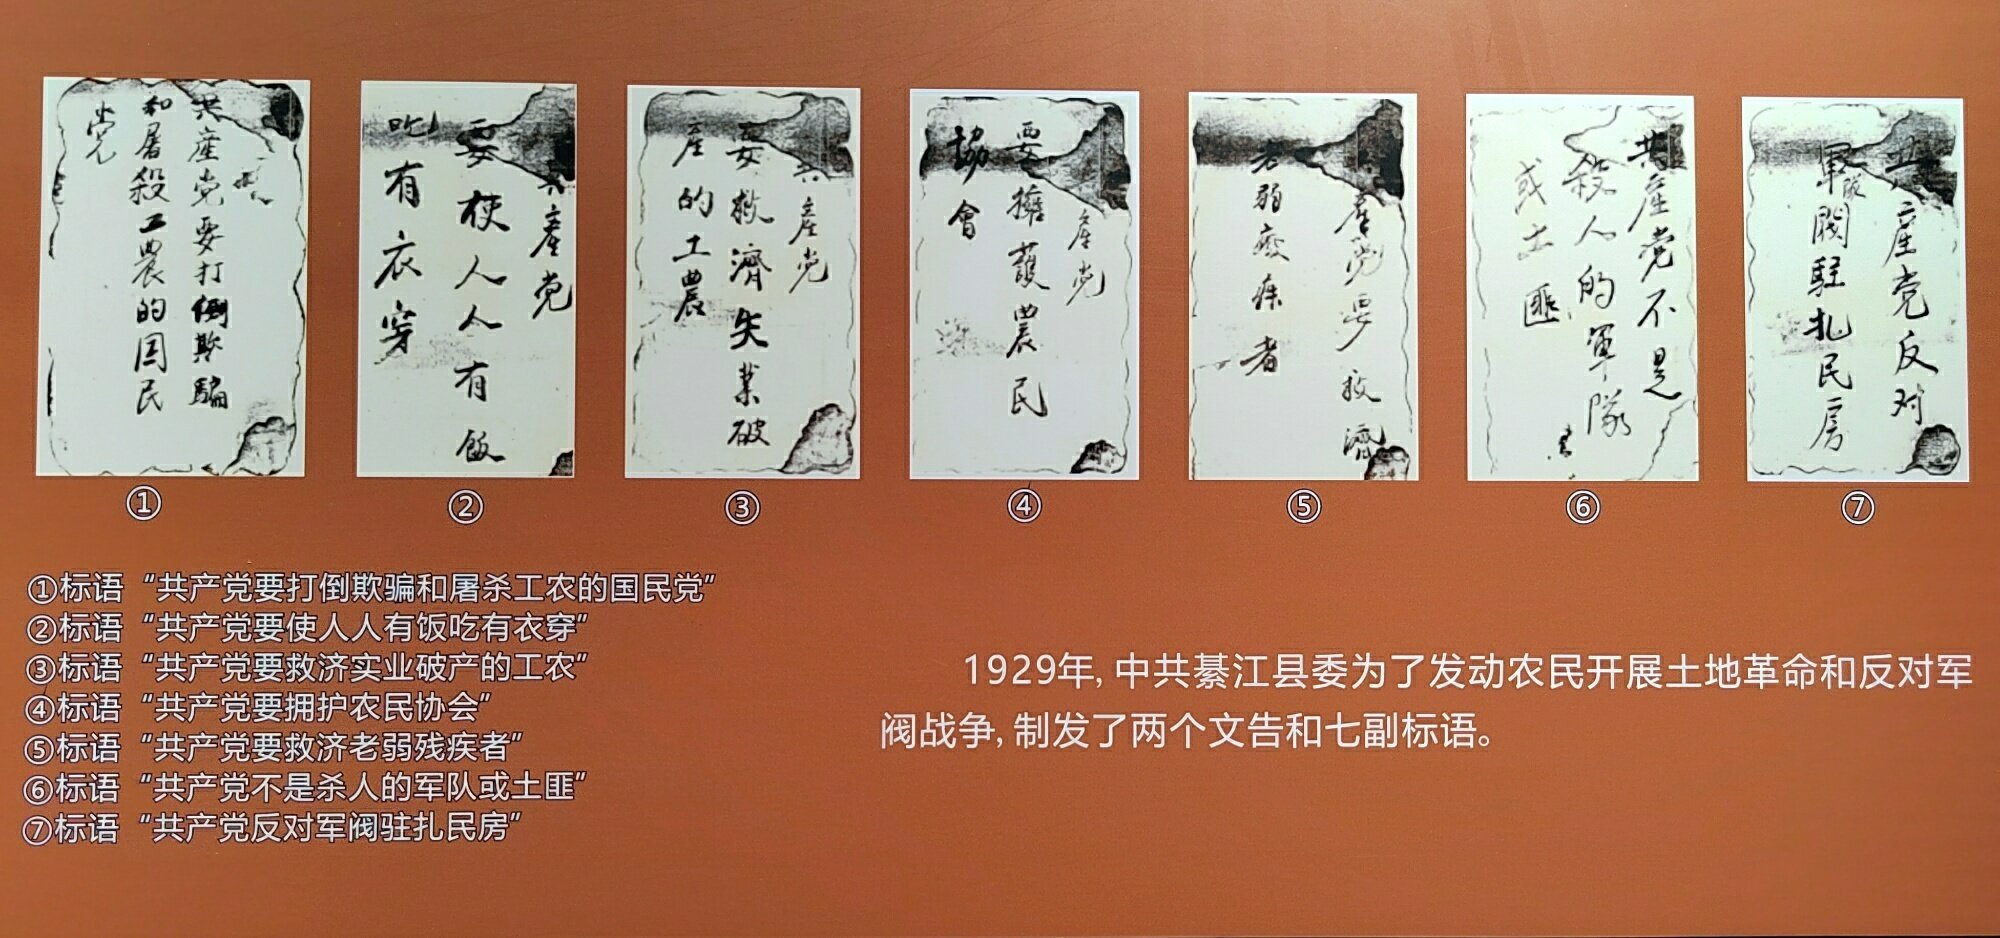 共產党要打倒欺騙
和屠殺工農的国民
党
共產党
要使人人有飯
吃有衣穿
共產党
要救濟失業破
產的工農
共產党
要擁護農民
協會
產党要救濟
老弱廢疾者
共產党不是
殺人的軍隊
或土匪
共產党反对
軍隊閥駐扎民房
① ② ③ ④ ⑤ ⑥ ⑦
①标语“共产党要打倒欺骗和屠杀工农的国民党”
②标语“共产党要使人人有饭吃有衣穿”
③标语“共产党要救济实业破产的工农”
④标语“共产党要拥护农民协会”
⑤标语“共产党要救济老弱残疾者”
⑥标语“共产党不是杀人的军队或土匪”
⑦标语“共产党反对军阀驻扎民房”
1929年,中共綦江县委为了发动农民开展土地革命和反对军
阀战争,制发了两个文告和七副标语。